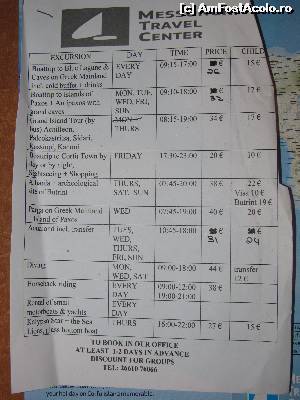 © AmFostAcolo.ro
MESS
TRAVEL
CENTER
EXCURSION DAY TIME PRICE CHILD
Boattrip to Blue Lagune & Caves on Greek Mainland incl. cold buffet + drinks EVERY DAY 09:15-17:00 26 15 €
Boattrip to Islands of Paxos + Antipaxos and grand caves MON, TUE, WED, FRI, SUN 09:10-18:00 32 17 €
Grand Island Tour (by bus) Achilleon, Paleokastritsa, Sidari, Kassiopi, Kanoni MON THURS 08:15-19:00 34 € 17 €
Boattrip to Corfu Town by day or by night, Sightseeing + Shopping FRIDAY 17:30-23:00 20 € 10 €
Albania - archeological site of Butrint THURS, SAT. SUN 07:45-20:00 38 € 22 €
Visa 10 €
Butrint 19 €
Parga on Greek Mainland + Island of Paxos WED 07:45-19:00 40 € 20 €
incl. transfer TUES, WED, THURS, FRI, SUN 10:45-18:00 31 24
Diving MON, WED, SAT 09:00-18:00 44 € transfer
12 €
Horseback riding EVERY DAY 09:00-12:00 38 €
19:00-21:00
Rental of small motorboats & yachts EVERY DAY
Kalypso Star - the Sea Lions, glass bottom boat THURS 16:00-22:00 27 € 15 €
TO BOOK IN OUR OFFICE
AT LEAST 1-2 DAYS IN ADVANCE
DISCOUNT FOR GROUPS
TEL: 26610 76066
your holiday on Corfu island a memorable